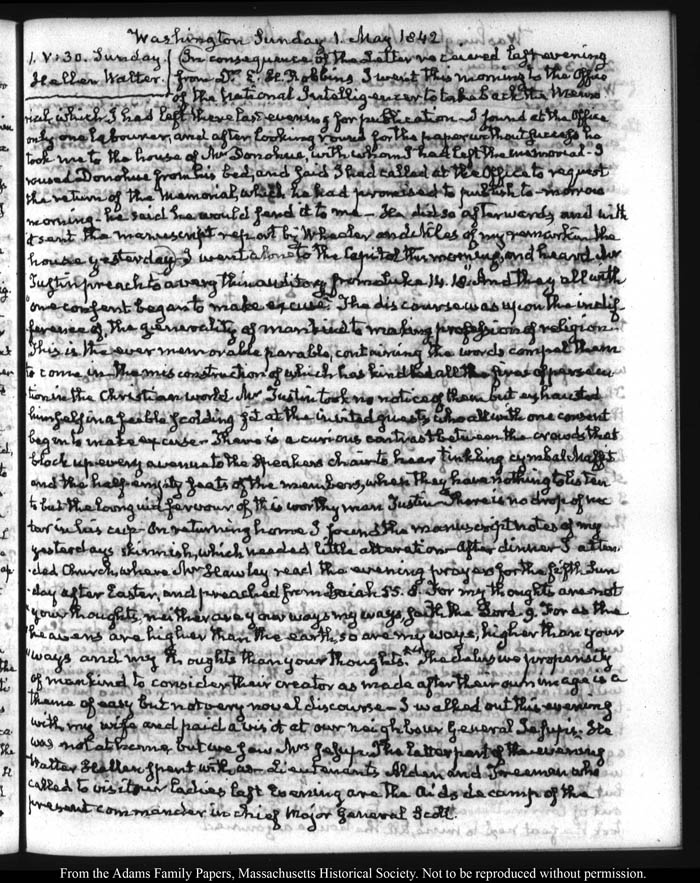 Washington Sunday 1. May 1842
1. V:30. Sunday.
Hellen Walter.
In consequence of the Letter received last evening
from Dr. E. H. Robbins I went this morning to the Office
of the National Intelligencer to take back the Memo
rial which I had left there last evening for publication. I found at the Office
only one labourer, and after looking round for the paper without success he
took me to the house of Mr Donohue, with whom I had left the memorial. I
roused Donohue from his bed, and said I had called at the Office to request
the return of the Memorial, which he had promised to publish to-morrow
morning. he said he would send it to me. He did so afterwards, and with
it sent the manuscript report by Wheeler and Niles of my remarks in the
house yesterday. I went alone to the Capitol this morning, and heard Mr
Tustin preach to a very thin auditory from Luke 14. 18. "And they all with
"one consent began to make excuse." The discourse was upon the indif
ference of the generality of mankind to making profession of religion.
This is the ever memorable parable, containing the words compel them
to come in the misconstruction of which has kindled all the fires of persecu
tion in the Christian world. Mr Tustin took no notice of them but exhausted
himself in a feeble scolding fit at the invited guests who all with one consent
began to make excuse. There is a curious contrast between the crowds that
block up every avenue to the Speakers chair to hear tinkling cymbal Maffit
and the half-empty seats of the members, when they have nothing to listen
to but the fervour of this worthy man Tustin. There is no drop of nec
tar in his cup. On returning home I found the manuscript notes of my
yesterdays skirmish, which needed little alteration. After dinner I atten
ded Church, where Mr Hawley read the evening prayers for the fifth Sun
day after Easter, and preached from Isaiah 55. 8. For my thoughts are not
"your thoughts, neither are your ways my ways, saith the Lord. 9. For as the
"heavens are higher than the earth, so are my ways, higher than your
"ways and my thoughts than your thoughts." The delusive propensity
of mankind to consider their creator as made after their own image is a
theme of easy but not very novel discourse. I walked out this evening
with my wife and paid a visit at our neighbour General Jesup's. He
was not at home but we saw Mrs Jesup. The latter part of the evening
Walter Hellen spent with us. Lieutenants Alden and Freeman who
called to visit our ladies last Evening are the Aids de camp of the
present commander in chief Major General Scott.
From the Adams Family Papers, Massachusetts Historical Society. Not to be reproduced without permission.